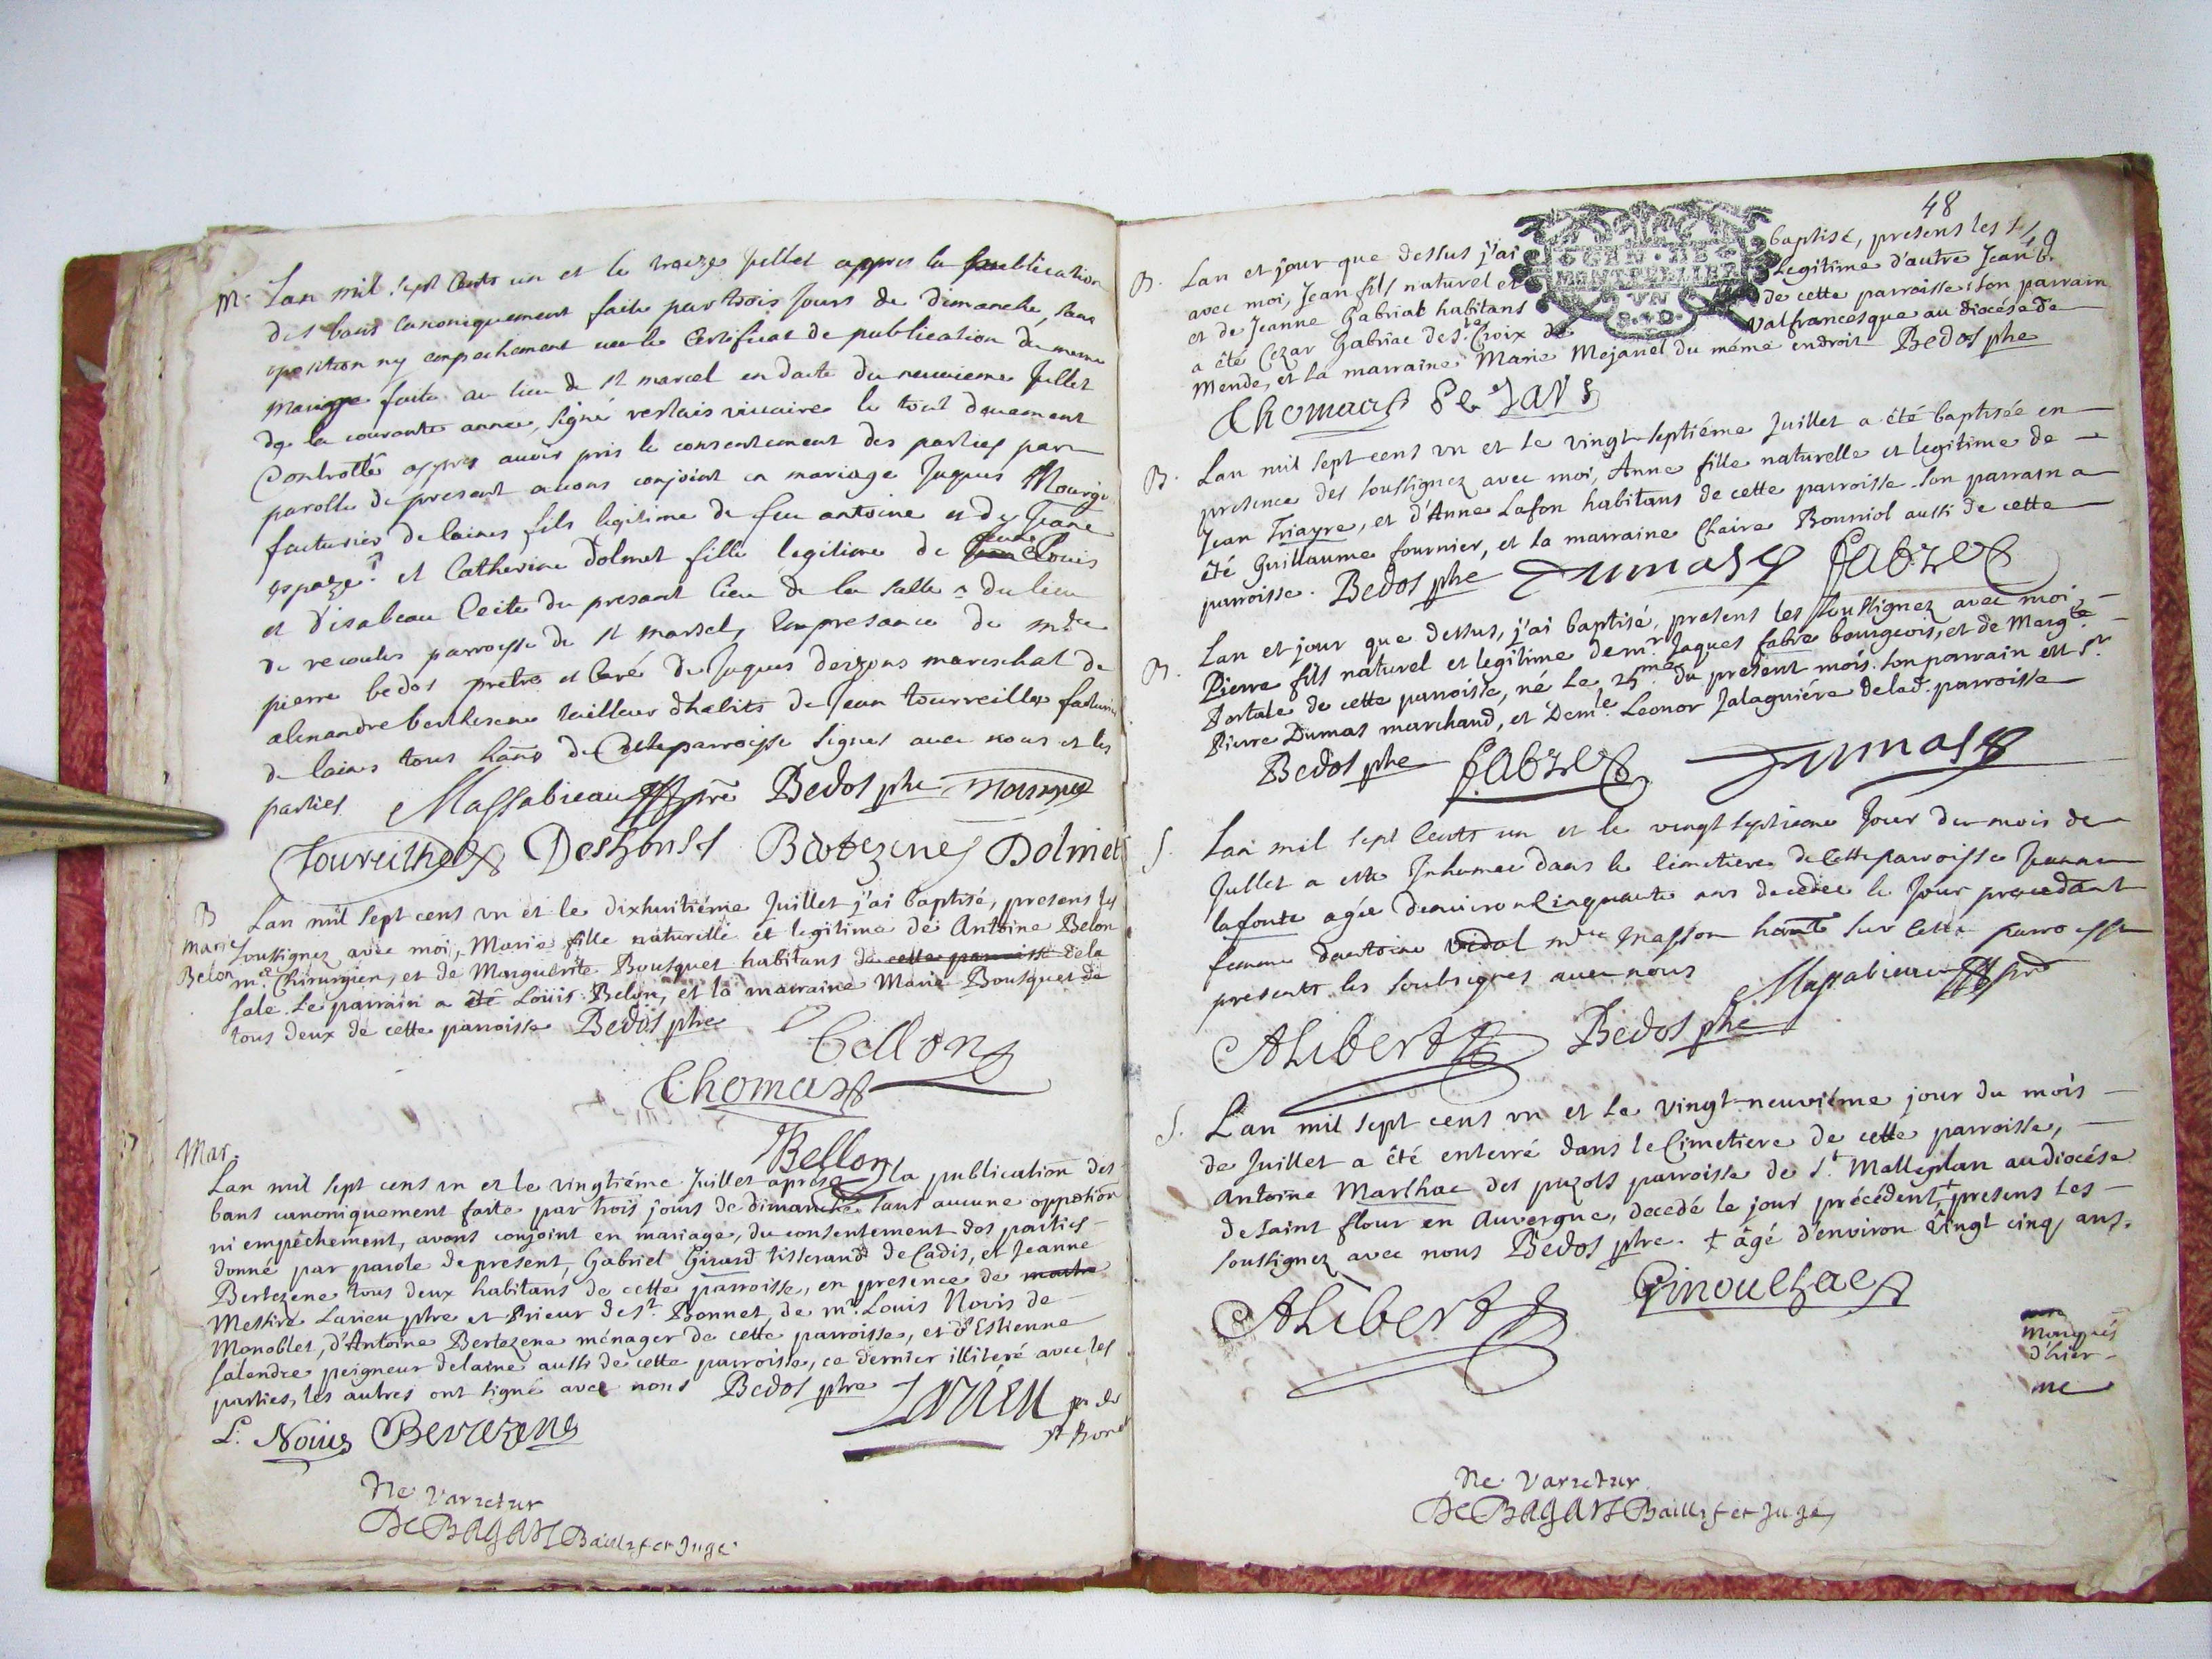 M. Lan mil sept cents un et le traize juillet appres la publication
des bans canoniquement faite par trois jours de dimanche, sans
oposition ny empechement veu le certificat de publication du meme
mariage faite au lieu de st marcel en date du neuvieme juillet
de la courante année, signé vicaire le tout deuement
Controllé appres avoir pris le consentement des parties par
parolle de present avons conjoint en mariage Jaques Mourgue
facturier de laines fils legitime de feu antoine et de Jeane
espaze et Catherine dolmet fille legitime de feu Louis
et d'isabeau Ceite du presant lieu de la salle du lieu
de recoules parroisse de st marsel, en presance de
pierre bedos pretre et curé de Jaques deszons mareschal de
alexandre berthesene tailleur d'habits de Jean tourreilles facturier
de laines tous habns de cette parroisse signes avec nous et les
parties Massabieau pre Bedos ptre Mourgue
Toureilhes Deshons Bertezene Dolmet
B Lan mil sept cens un et le dixhuitiéme Juillet j'ai baptisé, presens les
Marie soussignez avec moi, Marie fille naturelle et legitime de Antoine Belon
Belon me. Chirurgien, et de Marguerite Bousquet habitans de cette parroisse de la
sale. Le parrain a été Loüis Belon, et la marraine Marie Bousquet de
tous deux de cette parroisse Bedos ptre
Bellon
Thomas
Bellon
Mar.
Lan mil sept cens un et le vingtiéme Juillet aprés la publication des
bans canoniquement faite par trois jours de dimanche sans aucune oppotion
ni empéchement, avons conjoint en mariage, du consentement des parties
donné par parole de present, Gabriel Girard tisserand de Cadis, et Jeanne
Bertezene tous deux habitans de cette parroisse, en presence de
Messire Larieu ptre et Prieur de st. Bonnet, de mr. Louis Novis de
Monoblet, d'Antoine Bertezene ménager de cette parroisse, et d'Estienne
salendre peigneur de laine aussi de cette parroisse, ce dernier illiteré avec les
parties, les autres ont signé avec nous Bedos ptre Larieu pr de
st Bonet
L. Novis Bertezene
Ne Varietur
De BAGARS Baillif et Juge
48
B. Lan et jour que dessus j'ai baptisé, presens les
avec moi, Jean fils naturel et Legitime d'autre Jean
et de Jeanne Gabriac habitans de cette parroisse, son parrain
a été Cezar Gabriac de ste. Croix de Valfrancesque au diocése de
Mende, et la marraine Marie Mejanel du même endroit Bedos ptre
GEN. DE
MONTPELLIER
VN
S. D.
Thomas
B. Lan mil sept cens un et le vingt-septiéme Juillet a été baptisée en
presence des soussignez avec moi, Anne fille naturelle et legitime de
Jean Triayre, et d'Anne Lafon habitans de cette parroisse. son parrain a
été Guillaume fournier, et la marraine Claire Bousniol aussi de cette
parroisse. Bedos ptre Dumas fabre
B. Lan et jour que dessus, j'ai baptisé, presens les soussignez avec moi,
Pierre fils naturel et legitime de mr. Jaques fabre bourgeois, et de Margte
Portale de cette parroisse, né le 25me du present mois. son parrain est sr
Pierre Dumas marchand, et Demle. Leonor Jalaguiére de lad. parroisse
Bedos ptre fabre Dumas
S. Lan mil sept Cents un et le vingt septieme jour du mois de
Jullet a esté Inhumee dans le cimetiere de cette parroisse Jeanne
lafonte agée denviron cinquante ans decedee le jour precedant
femme dantoine vidal masson habnte sur cette parroisse
presents les soubsignes avec nous Massabieau pre
Alibert Bedos ptre
S. Lan mil sept cens un et le vingt-neuviéme jour du mois
de Juillet a été enterré dans le Cimetiere de cette parroisse,
Antoine Marlhac des puzols parroisse de st. Malleplau au diocése
de saint flour en Auvergne, decedé le jour précédent, + presens les
soussignez avec nous Bedos ptre. + âgé d'environ vingt cinq ans.
Alibert Ginoulhac
Ne Varietur
De BAGARS Baillif et Juge